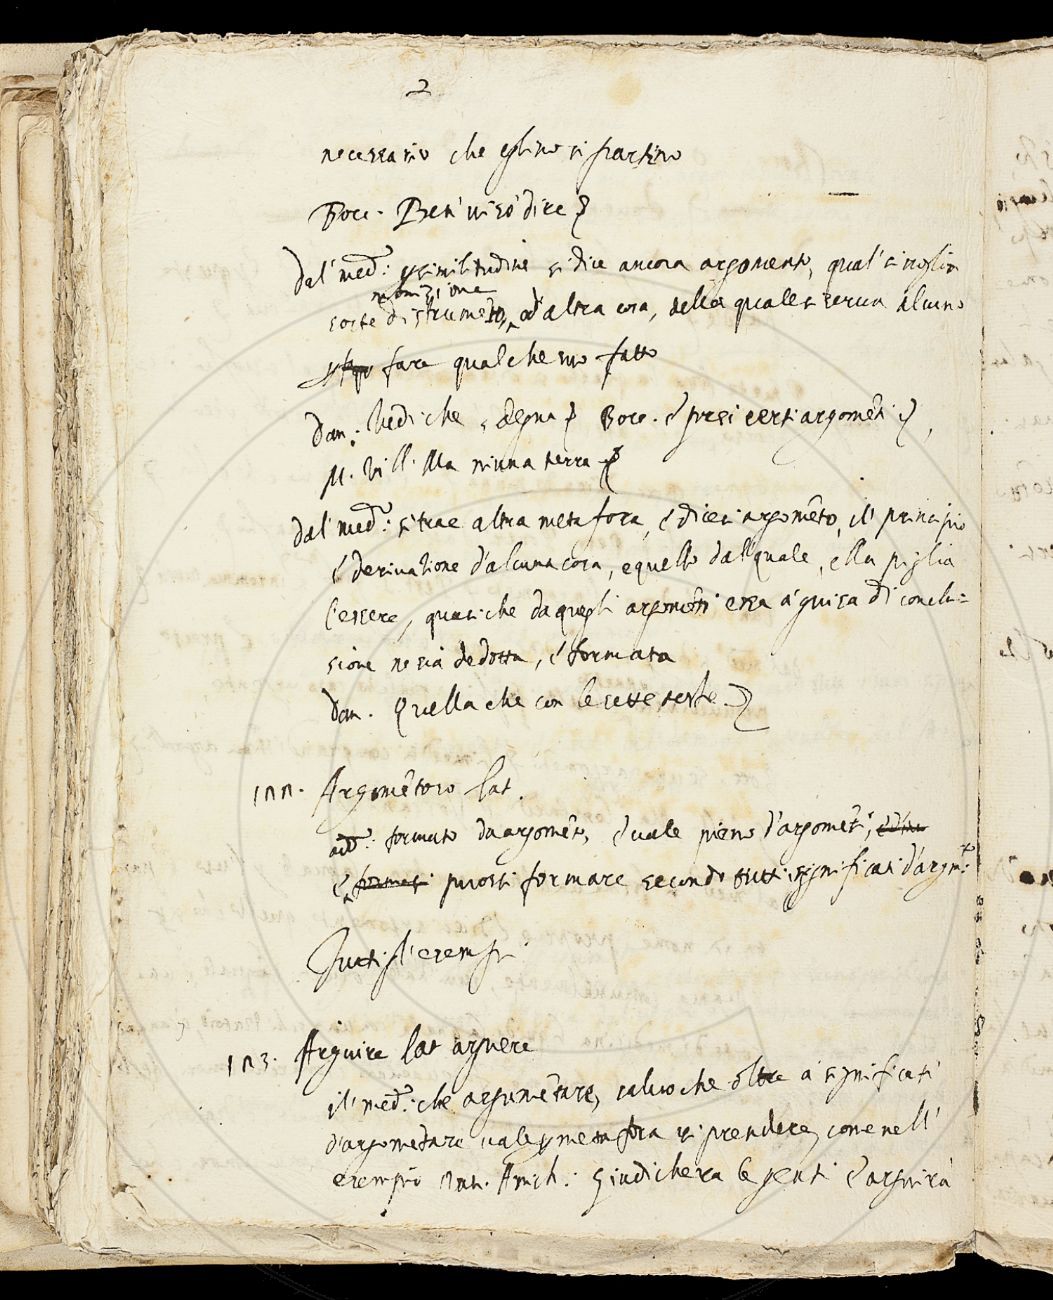 2
necessario che eglino si partino
Bocc. Ben' vi sò dire
dal' med.: p similitudine si dice ancora argomento, qual' si voglia
sorte d'istrumēto, ò d'altra cosa, della quale si serva alcuno
inuēzione
fare qualche suo fatto
Dan: Vedi che sdegna Bocc. è presi certi argomēti
M. Vill. Ma niuna terra
dal' med.: si trae altra metafora, è dicesi argomēto, il' principio
è derivatione d'alcuna cosa, e quello dal' quale, ella piglia
l'essere, quasi che da quegli argomēti essa à guisa di conclu=
sione ne sia dedotta, è formata
Dan. Quella che con le sette teste
122. Argomētoso lat.
add.: formato da argomēto, è vale pieno d'argomēti,
è puossi formare secondo tutti i significati d'argm.to
123. Arguire lat arguere
il' med.: che argumētare, salvo che oltre à significati
d'argomētare vale p metafora riprendere, come nell'
esempio Ant. Amich.: Giudichera le genti è arguirà